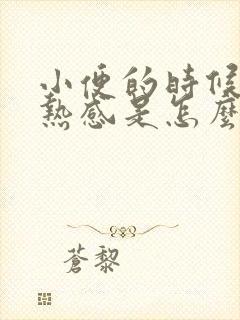 小便的時候
熱感是怎麼
蒼黎